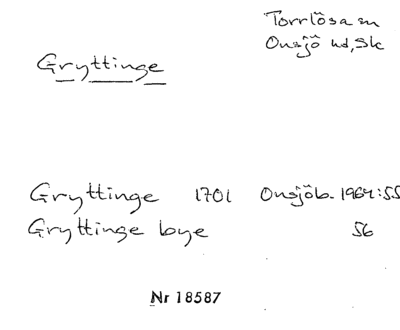 Torrlösa sn
Onsjö hd, Sk
Gryttinge
Gryttinge 1701 Onsjöb. 1964:55
Gryttinge bye 56
Nr 18587